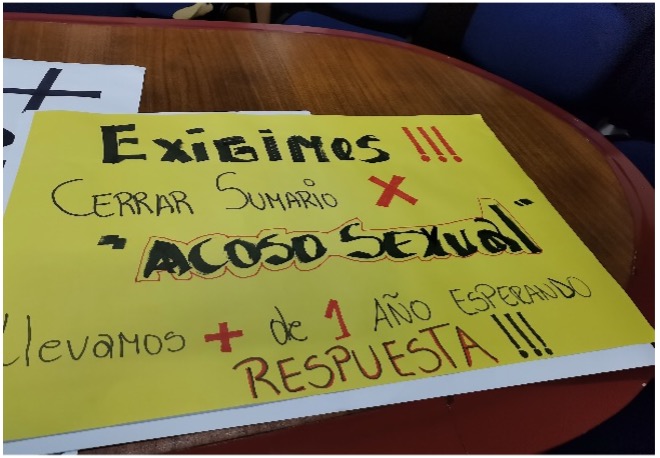 EXIGIMOS !!!
CERRAR SUMARIO X
"ACOSO SEXUAL"
Llevamos + de 1 AÑO ESPERANDO
RESPUESTA !!!